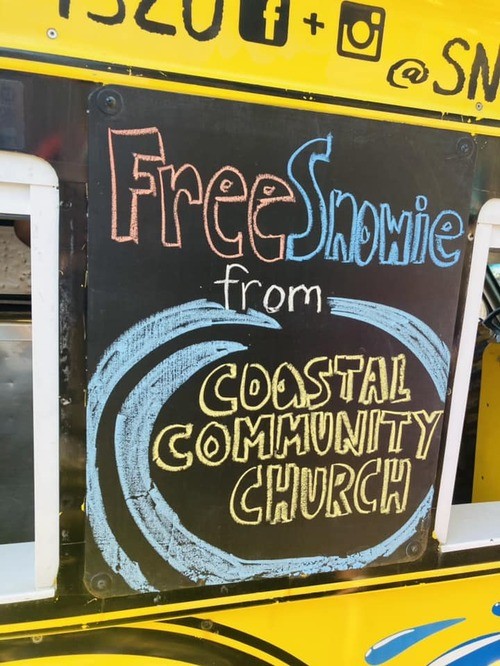 1520 f +
@SN
Free Snowie
from
COASTAL
COMMUNITY
CHURCH